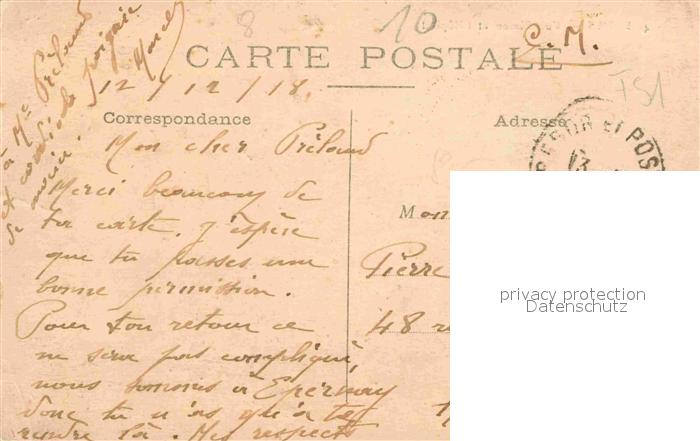 10
8
TS1
C. M.
CARTE POSTALE
12 / 12 / 18.
Correspondance
Adresse
TRESOR ET POS
13
Mon cher Préland
Merci beaucoup de
ta carte. J'espère
que tu passes une
bonne permission.
Pour ton retour ce
ne sera pas compliqué,
nous sommes à Epernay
donc tu n'as qu'à te
rendre là. Mes respects
à Me Préland
et cordiale poignée
de main.
Marcel
Mon
Pierre
48 r
privacy protection
Datenschutz